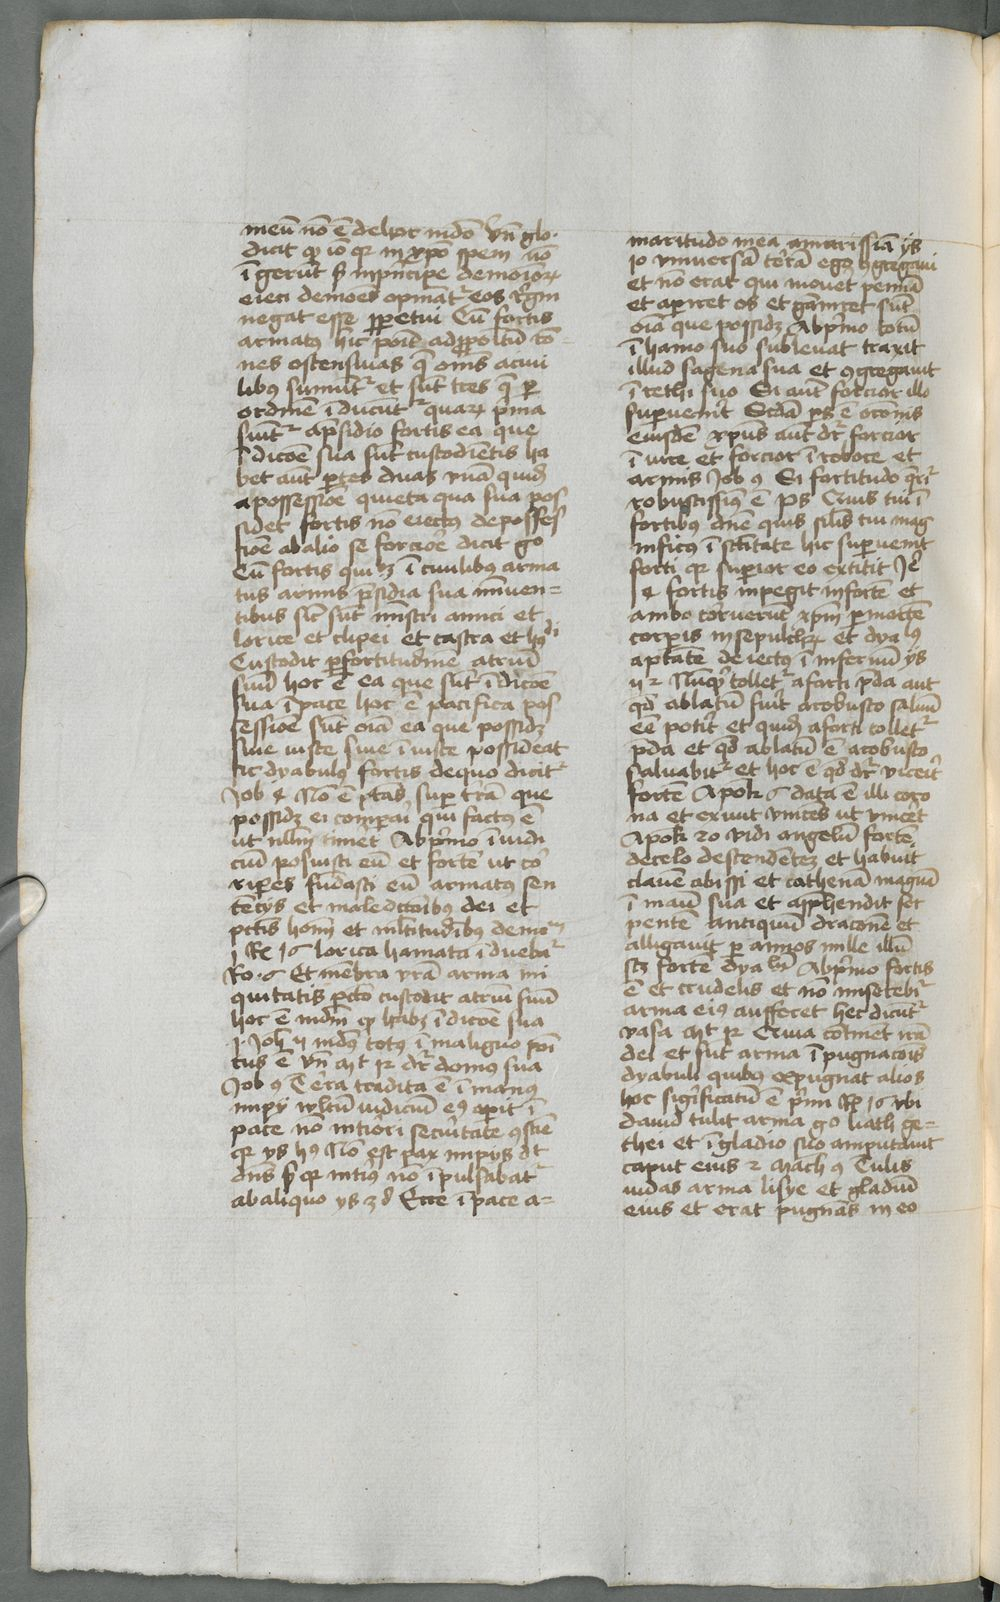 meū nō ē de hoc mūdo Vn̄ glo.
dicit ꝙ iō qꝛ in xp̄o spem nō
ī gerūt sꝫ in pͥncipe demoīoꝝ
eieci demoēs opinat᷑ eos regnū
negat esse ꝑpetui Cū fortis
armatꝰ hic poīt ad ꝓpoītū rō-
nes ostensiuas
libꝰ sumūt᷑ et sūt tres ꝙ ꝑ
ordinē ī ducūt᷑ quaꝝ pͥma
sūit᷑ a p̄sidio fortis ea que
ī dicōe sua sūt custodiētis ha
bet aūt ꝑtes duas vnā quidē
a possessiōe quieta qua sua pos
sidet fortis nō eiectꝰ de posses
siōe ab alio se forciore dicit go
Cū fortis qui ꝫ ī ciuilibꝰ arma
tus armis p̄sidia sua īmuen-
tibus sic sūt mīstri amici et
lorice et clipei et castra et hꝰdi
Custodit ꝑ fortitudinē atriū
suū hoc ē ea que sūt ī dicōe
sua ī pace hoc ē pacifica pos
sessiōe sūt oīa ea que possidꝫ
siue iuste siue ī iuste possideat
sic dyabulꝰ fortis de quo dicit᷑
Job 4 Nō ē ptās suꝑ t̄rā que
possidꝫ ei comparari qui factꝰ ē
ut nllm timēt Ab pͥmo ī iudi
ciū posuisti eū et fortē ut cor
riperes fūdasti eū armatꝰ sen
tēcijs et maledictōibꝰ dei et
pctīs homī et mltitudībꝰ demoꝶ
1 Re 16 lorica hamata ī dueba᷑
Ro. 6 Et mēbra vrā arma ini
quitatis pctō custodit atriū suū
hoc ē mūdū ꝙ habꝫ ī dicōe sua
1 Joh̄ 4 mūdꝰ totꝰ ī maligno poī
tus ē Vn̄ Mt 12 dr̄ domꝰ sua
Job 9 Terra tradita ē ī manꝰ
impij vltū iudiciū eiꝰ aꝑit ī
pace nō inteōri securitate ꝯscīe
qꝛ ys h9 Nō est pax impijs dt
dn̄s sꝫ qꝛ intiꝰ nō ī pulsabat᷑
ab aliquo ys 38 Ecce ī pace a-
maritudo mea amarissīa ys
10 vniuersā terrā ego ꝯgregaui
et nō erat qui mouet pennā
et aꝑiret os et gāniret sūt
oīa que possidꝫ Ab pͥmo totū
ī hamo suo subleuat traxit
illud sagena sua et ꝯgregauit
ī rethi suo Si aūt forcior illo
suꝑuenit Scdā ps ē orōnis
eiusdē xp̄us aūt dr̄ forcior
ī iure et forcior ī robore et
armis Job 9 Si fortitudo qͥrit᷑
robustissimꝰ ē Ps Cuius tui ī
fortibꝰ dn̄e quis silīs tui mag
nificꝰ ī sc̄titate hic suꝑuenit
forti qꝛ suꝑior eo extitit Je
4 fortis inpegit in fortē et
ambo corruerūt xp̄m ꝑ mortē
corꝑis in sepulchꝝ et dyalꝰ
aptatē deiectꝰ ī infernū ys
42 Nūqͥd tollet᷑ a forti p̄da aut
qd ablatū fūit a robusto saluū
eē potit et quidē a forti tollet᷑
p̄da et qd ablatū ē a robusto
saluabit᷑ et hoc ē qd dr̄ vicerit
fortē Apoꝛ 6 data ē illi coro
na et exiuit vincēs ut vincēt
Apoꝛ 20 vidi angelū fortē
de celo descendētē et habuit
clauē abissi et cathenā magnā
ī manu sua et apꝑhendit ser
pentē antiquū draconē et
alligauit ꝑ annos mille illū
scꝫ fortē dyabulū Ab pͥmo fortis
ē et crudelis et nō miserebit᷑
arma eiꝰ aufferet hec dicūt᷑
vasa Mt 12 Cuia cōtinēt irā
dei et sūt arma ī pugnacōis
dyabuli quibꝰ expugnat alios
hoc significatū ē pͥmi Re 16 vbi
dauid tulit arma goliath ge-
thei et ī gladio suo amputauit
caput eius 1 Mach 9 Tulit
iudas arma lisye et gladiū
eius et erat pugnās in eo